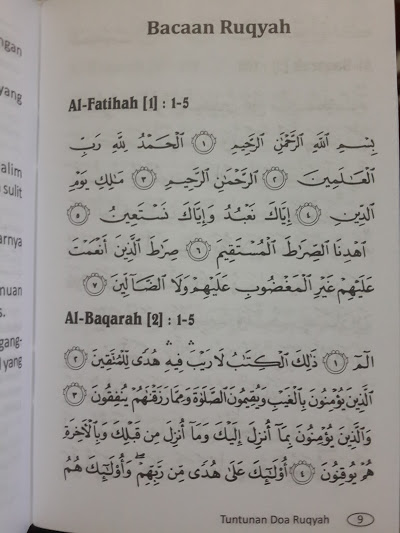 ngan
yang
alim
sulit
arnya
nuan
s.
gang-
yang
Bacaan Ruqyah
Al-Fatihah [1] : 1-5
بِسْمِ اللَّهِ الرَّحْمَٰنِ الرَّحِيمِ ۝١ الْحَمْدُ لِلَّهِ رَبِّ
الْعَالَمِينَ ۝٢ الرَّحْمَٰنِ الرَّحِيمِ ۝٣ مَالِكِ يَوْمِ
الدِّينِ ۝٤ إِيَّاكَ نَعْبُدُ وَإِيَّاكَ نَسْتَعِينُ ۝٥
اهْدِنَا الصِّرَاطَ الْمُسْتَقِيمَ ۝٦ صِرَاطَ الَّذِينَ أَنْعَمْتَ
عَلَيْهِمْ غَيْرِ الْمَغْضُوبِ عَلَيْهِمْ وَلَا الضَّالِّينَ ۝٧
Al-Baqarah [2] : 1-5
الٓمٓ ۝١ ذَٰلِكَ الْكِتَابُ لَا رَيْبَ ۛ فِيهِ ۛ هُدًى لِلْمُتَّقِينَ ۝٢
الَّذِينَ يُؤْمِنُونَ بِالْغَيْبِ وَيُقِيمُونَ الصَّلَاةَ وَمِمَّا رَزَقْنَاهُمْ يُنْفِقُونَ ۝٣
وَالَّذِينَ يُؤْمِنُونَ بِمَا أُنْزِلَ إِلَيْكَ وَمَا أُنْزِلَ مِنْ قَبْلِكَ وَبِالْآخِرَةِ
هُمْ يُوقِنُونَ ۝٤ أُولَٰئِكَ عَلَىٰ هُدًى مِنْ رَبِّهِمْ ۖ وَأُولَٰئِكَ هُمُ
Tuntunan Doa Ruqyah 9